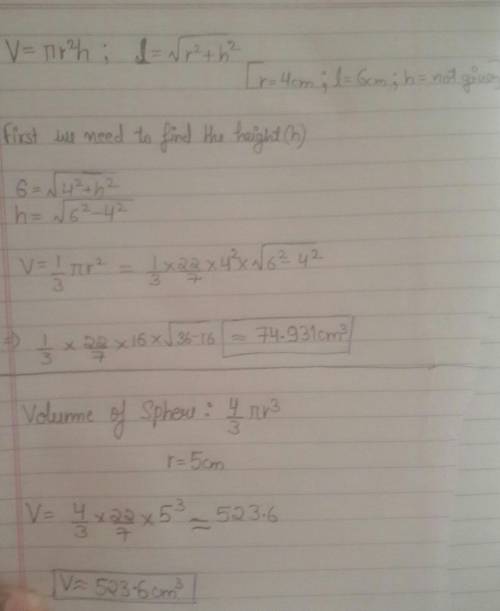 V = πr²h ; l = √r²+h²
[r=4cm ; l=6cm ; h = not given
First we need to find the height (h)
6 = √4²+h²
h = √6²-4²
V = 1/3 πr² = 1/3 × 22/7 × 4² × √6²- 4²
⇒ 1/3 × 22/7 × 16 × √36-16 ≈ 74.931cm³
Volume of Sphere : 4/3 πr³
r = 5cm
V = 4/3 × 22/7 × 5³ ≈ 523.6
V ≈ 523.6cm³